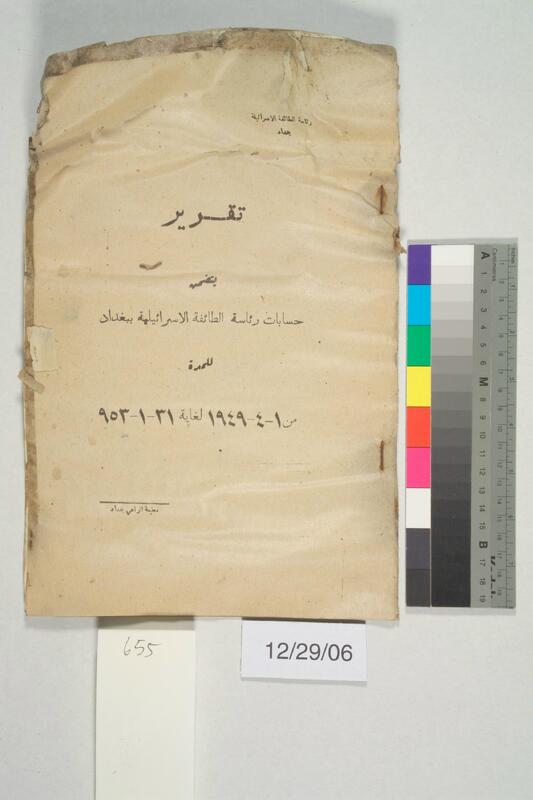 رئاسة الطائفة الاسرائيلية
بغداد
تقرير
يتضمن
حسابات رئاسة الطائفة الاسرائيلية ببغداد
للمدة
من ١-٤-١٩٤٩ لغاية ٣١-١-٩٥٣
مطبعة الراعي بغداد
655
12/29/06
Inches
Centimetres
A 1 2 3 4 5 6 M 8 9 10 11 12 13 14 15 B 17 18 19